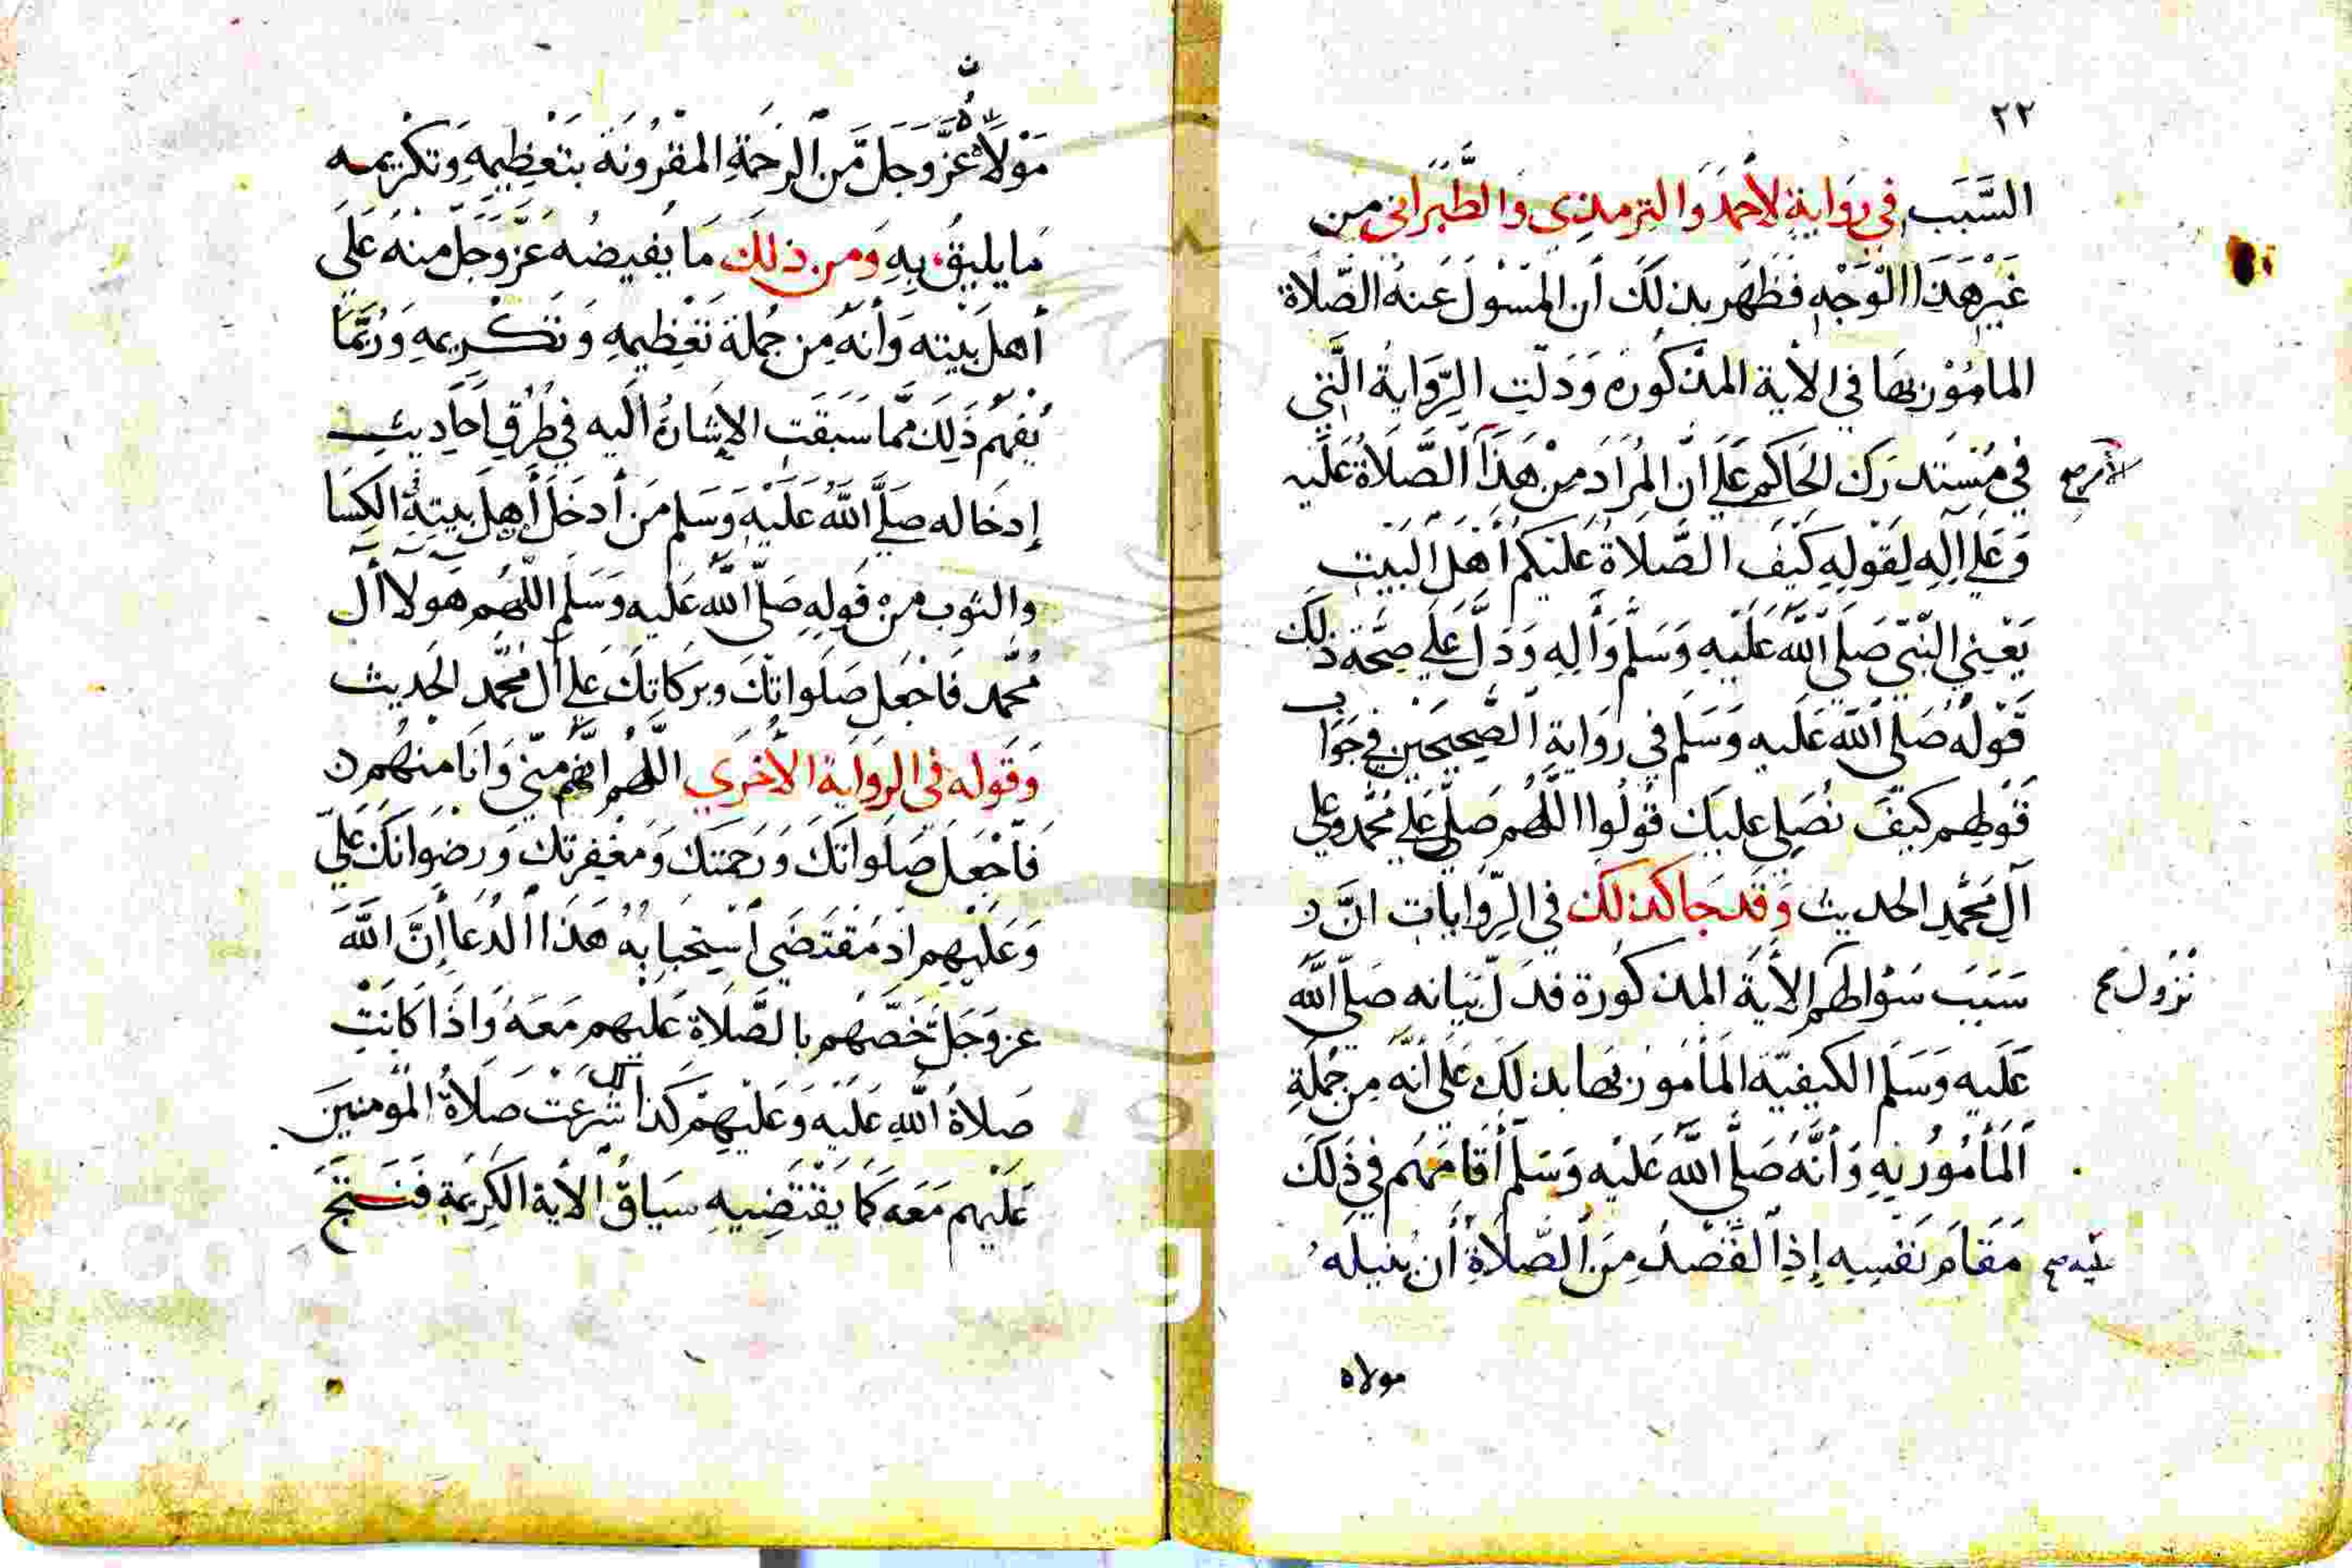 ٢٢
السَّبَب في رِوَايةٍ لأحمَدَ وَالترمذي وَالطَّبَراني من
غَيْرِ هَذَا الْوَجْهِ فَظَهَر بذلكَ أن المسْولَ عَنهُ الصَّلاة
المامُوْر بهَا في الأية المذكُورَه وَدَلّتِ الرِّوَايةُ الَّتي
في مُسْتَدرَك الحَاكم عَلَى أنّ المُرَادَ مِنْ هَذَا الصَّلَاةُ عَلَيه
الأمر صح
وَعَلى اَلِهِ لِقَوْلِهِ كَيْفَ الصَّلَاةُ عَلَيكم أَهْلَ الْبَيْتِ
يَعْني النّبّي صَلى اللهُ عَلَيْهِ وَسَلَّم وَألِهِ وَدَلَّ عَلَى صِحَّة ذلك
قَوْلُهُ صَلى اللهُ عَلَيه وَسَلم في روَايةِ الصَّحِيحَيْن في جَوَاب
قَوْلهم كيْفَ نُصَلي عليكَ قُولُوا اللَّهُم صَلِّ عَلَى محُمَّد وعلي
آلِ محَمَّدٍ الحديث وَقَد جَا كذلكَ في الرِّوَايَاتِ انَّ
سَبَبَ سَؤالهم الأيَةُ المذكُورة فدَلّ بَيَانه صَلّى اللَّه
نُزُول صح
عَلَيه وَسَلم الكيفيّة المَأمُور بَها بذلكَ عَلَى أنّهَ مِن جُملَةِ
المَأمُور بِهِ وَأنَّهُ صَلَّى اللَّهُ عَليْه وَسَلم أقَامَهُم في ذَلَكَ
مَقَامَ نَفسِهِ إِذِ القَصْدُ مِنَ الصَّلَاةِ أَنْ يُنيلَهُ
مولاه
مَوْلَاهُ عَزَّ وَجَلَ مِّنَ الرحمَةِ المقرُونَة بتَعْظِيمِهِ وَتكْرِيمه
مَا يليقُ بِهِ وَمن ذلكَ مَا يُفيضُه عَزَّ وَجَلَّ مِنهُ عَلَى
أهل بَيْته وَأنّه مِن جُملَة تَعْظيمِهِ وَ تَكْرِيمِهِ وَرُبَّمَا
يُفهَم ذَلِكَ مَّما سَبَقَتِ الإشَارةُ اليه في طرُقِ أحَادِيثِ
إدخَاله صَلَّى اللَّهُ عَلَيْهِ وَسَلم مَن أدخَلَ أهِل بَيتِهِ في الكِسَا
والثوب من قولهِ صَلّى اللَّهُ عَلَيه وَسَلم اللَّهُم هَولا أل
محُمَّد فَاجْعَل صَلَواتِكَ وبركَاتِكَ عَلى ألِ محُمَّد الحَديث
وَقوله في الروَايَةِ الأخرَي اللَّهُم انهُّم مِنّي وَانَا مِنهُم
فَاجْعَلَ صَلَواتِكَ وَرَحمَتكَ وَمغْفِرتكَ وَرضْوَانَكَ عَليّ
وَعَلَيْهِم اذ مُقتَضَي اسْتِجَابةُ هَذَا الدُعَا إنَّ اللَّهَ
عز وَجَلَّ خَصَّهُم بالصَّلَاةِ عَلَيهِم مَعَهُ وَاذَا كَانَتْ
صَلاةُ اللَّهِ عَلَيْهِ وَعَليْهِمْ كذلك شُرعَتْ صَلَاةُ المُومِنِينَ
عَلَيْهِم مَعَه كَمَا يَقْتَضِيهِ سِيَاقُ الأية الكَرِيمَةِ